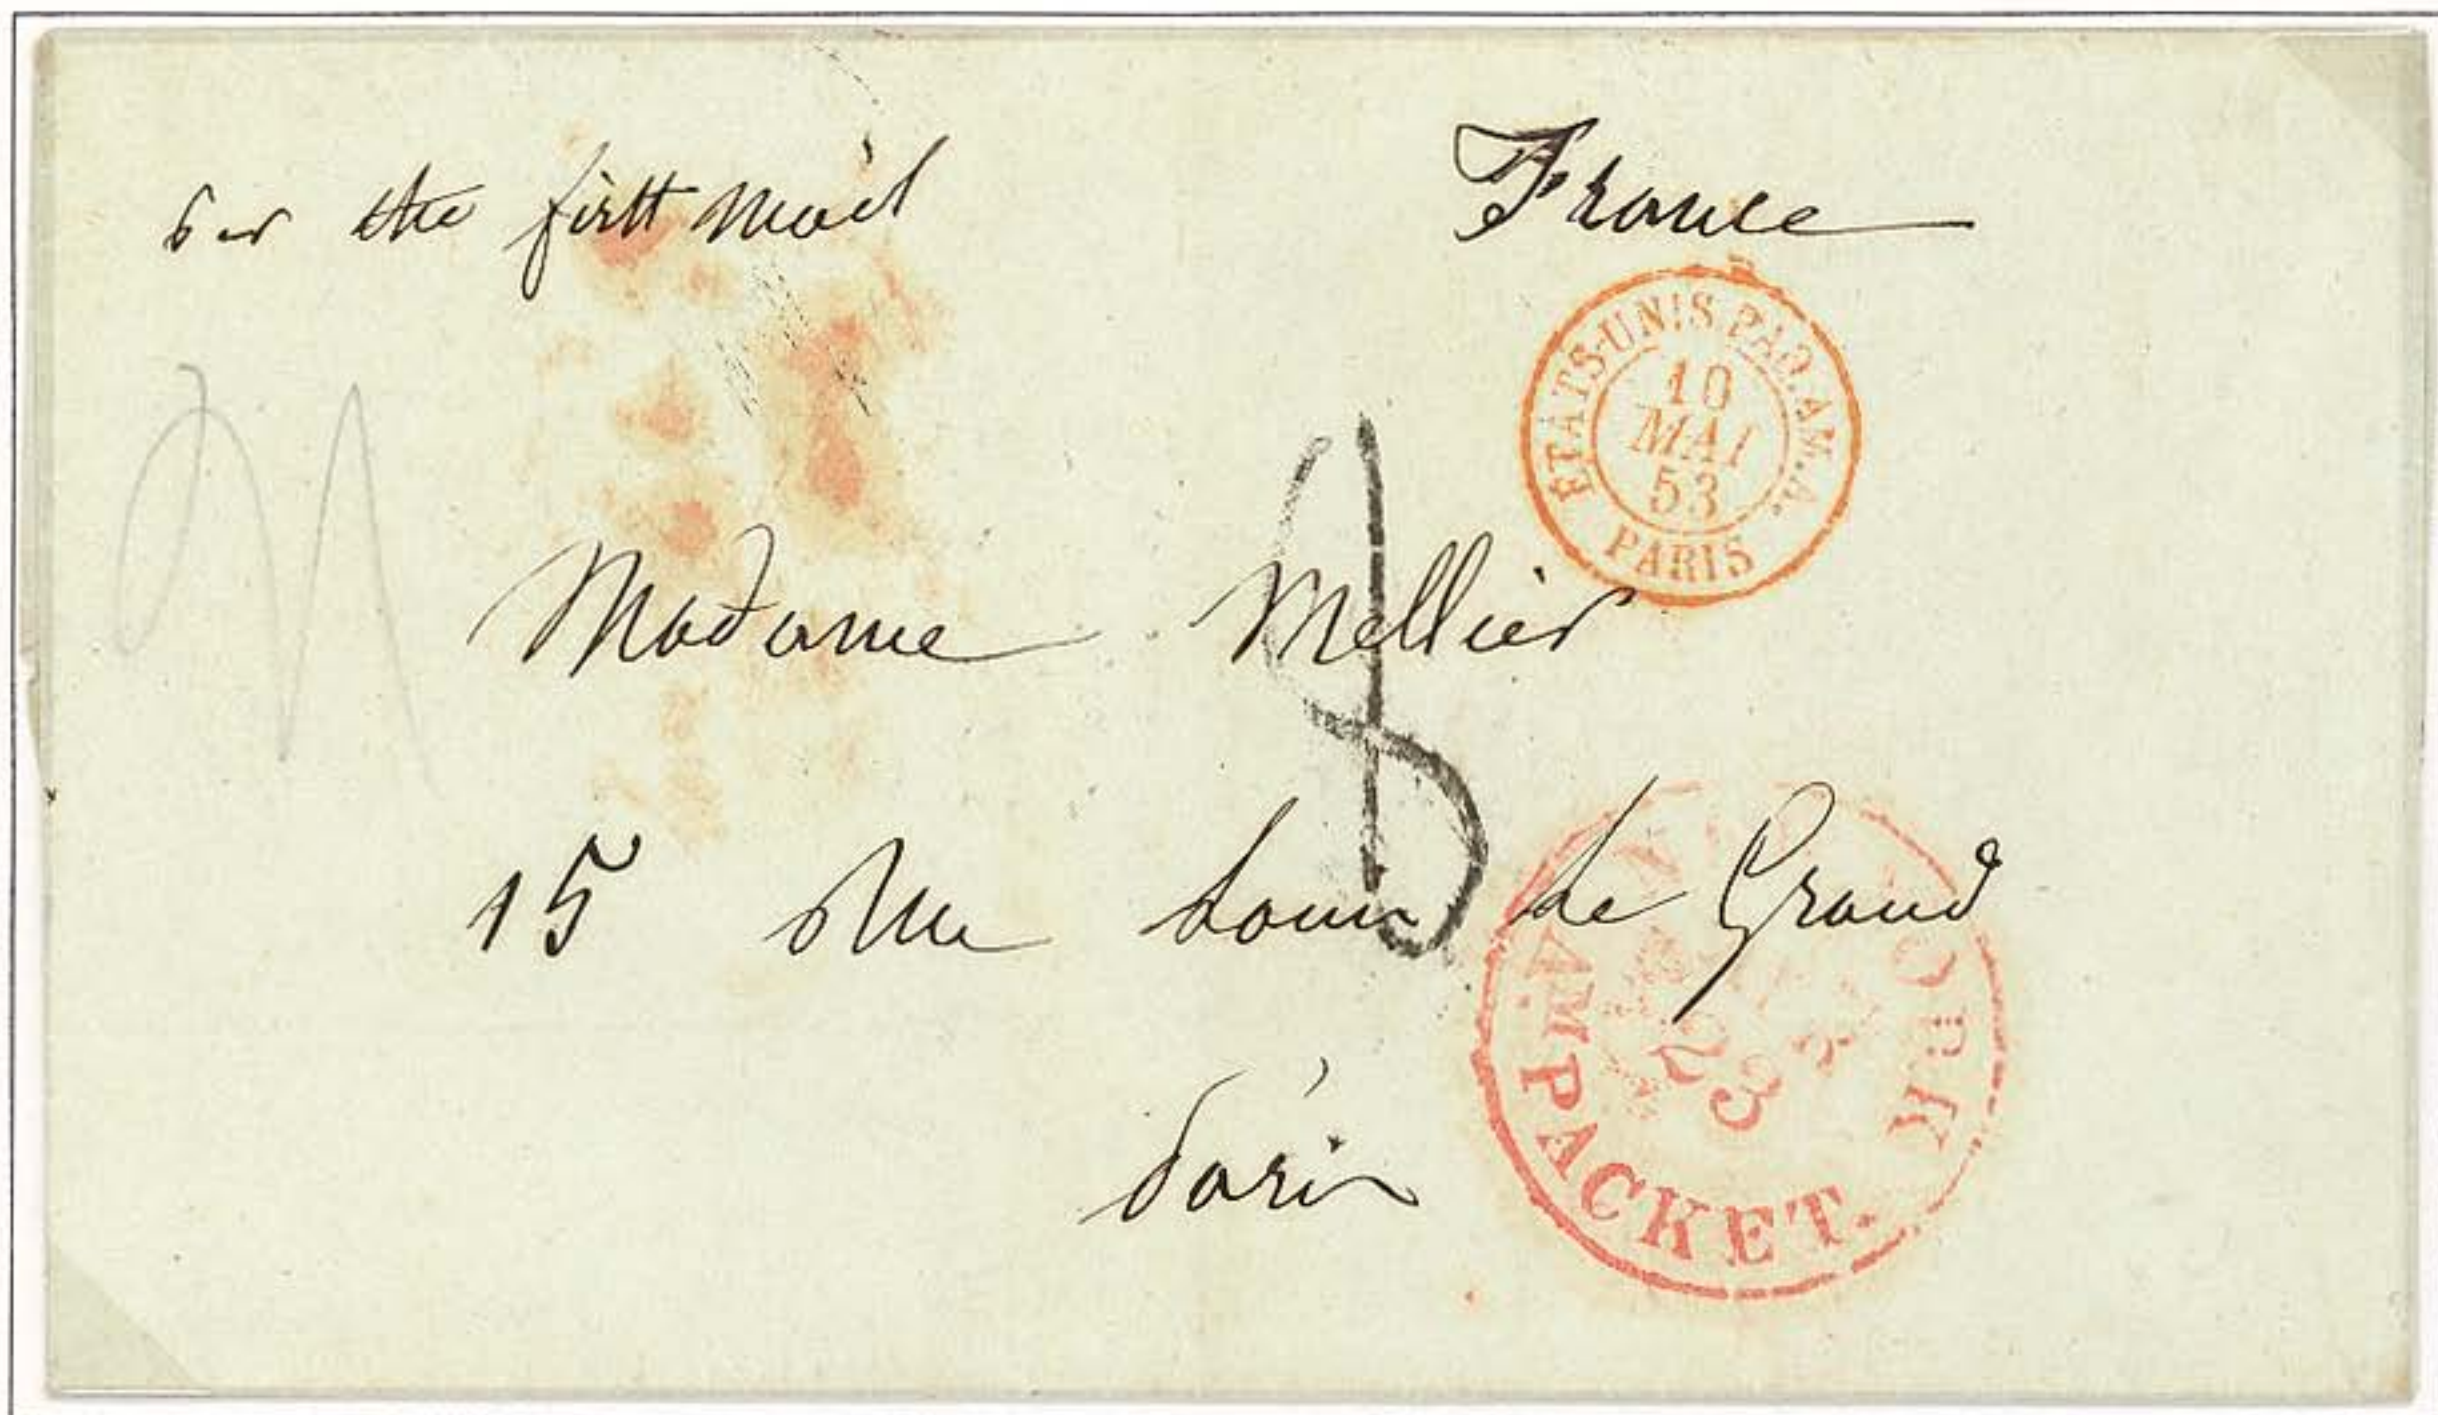 per the first mail
France
ETATS-UNIS PAQ. AM. A.
10
MAI
53
PARIS
Madame Mellier
8
15 Rue Louis Le Grand
Paris
NEW YORK
23
AM PACKET.